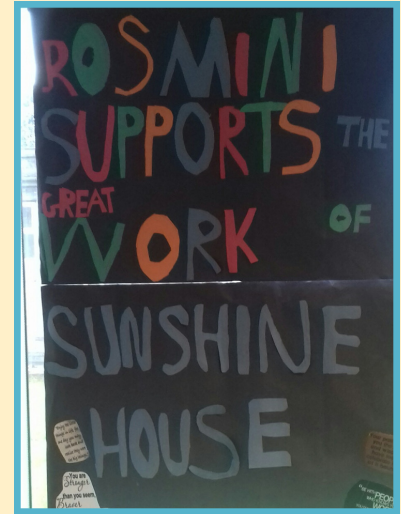 ROSMINI
SUPPORTS THE
GREAT
WORK OF
SUNSHINE
HOUSE
You are
Stronger
than you seem,
Braver